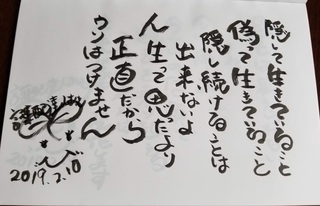 隠して生きていること
偽って生きていること
隠し続けることは
出来ないよ
人生って思ったより
正直だから
ウソはつけません
2019.2.10